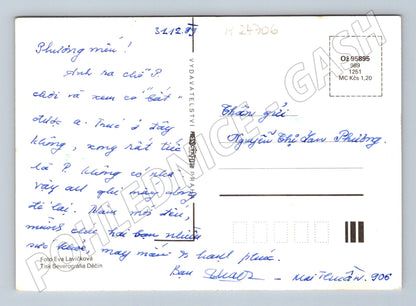 31.12.89
M 24906
Phương mến!
Anh ra chỗ P.
chơi và xem có "cắt"
được a. Trúc ở đây
không, xong rất tiếc
là P. không có nhà
vậy anh ghi mấy dòng
để lại. Năm mới đến,
chúc hai bạn nhiều
sức khỏe, may mắn & hạnh phúc.
Bạn
Mai Thuần. 906
VYDAVATELSTVÍ
Ož 95895
989
1251
MC Kčs 1,20
Thân gửi
Nguyễn Thị Lan Phương.
Foto Eva Lavičková
Tisk Severografia Děčín
POHLEDNICE - GASH